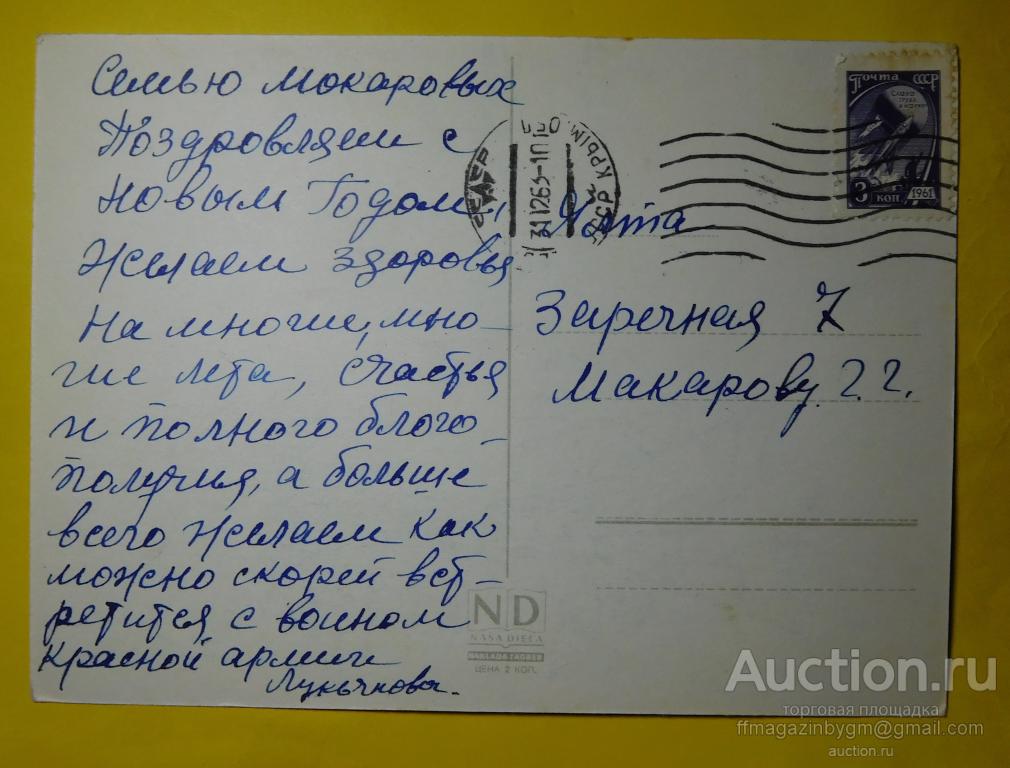 Семью Мокаровых
Поздровляем с
Новым Годом!
Желаем здоровья
на многие, мно-
гие лета, счастья
и полного благо-
получия, а больше
всего желаем как
можно скорей вст-
ретится с воином
красной армии
Лукьянова.
Ялта
Заречная 7
Макарову. Г. Г.
ПОЧТА СССР
СЛАВА
ТРУДУ
И НАУКЕ
3 КОП.
1961
31.12.63-10
КРЫМ. ОБЛ.
ND
NAŠA DJECA
NAKLADA ZAGREB
ЦЕНА 2 КОП.
Auction.ru
торговая площадка
ffmagazinbygm@gmail.com
auction.ru